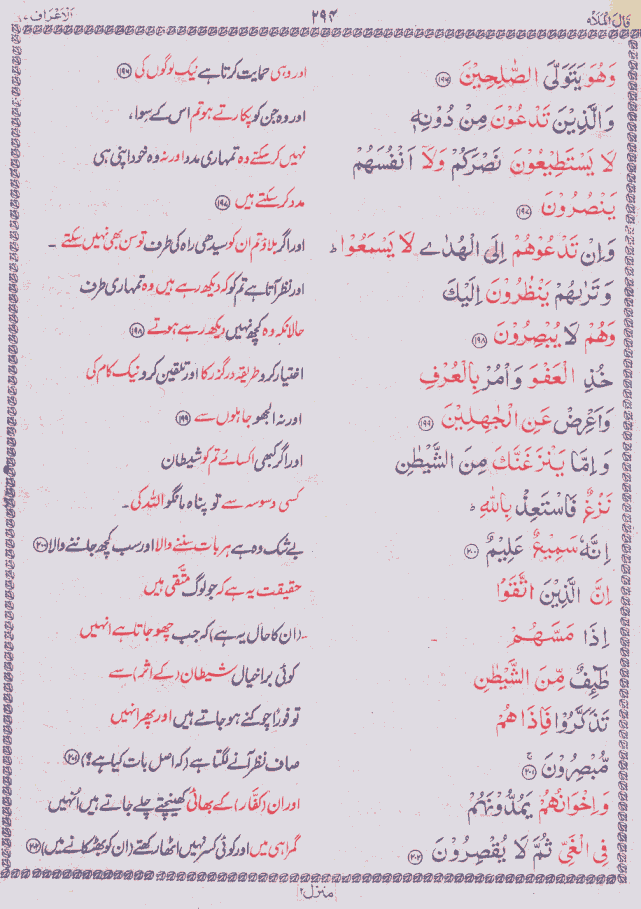 قَالَ الْمَلَاُ ٢٩٤ اَلْاَعْرَاف ٧
وَهُوَ يَتَوَلَّى الصّٰلِحِيْنَ ﴿۱۹۶﴾ اور وہی حمایت کرتا ہے نیک لوگوں کی ﴿۱۹۶﴾
وَالَّذِيْنَ تَدْعُوْنَ مِنْ دُوْنِهٖ اور وہ جن کو پکارتے ہو تم اس کے سوا،
لَا يَسْتَطِيْعُوْنَ نَصْرَكُمْ وَلَآ اَنْفُسَهُمْ نہیں کرسکتے وہ تمہاری مدد اور نہ وہ خود اپنی ہی
يَنْصُرُوْنَ ﴿۱۹۷﴾ مدد کرسکتے ہیں ﴿۱۹۷﴾
وَاِنْ تَدْعُوْهُمْ اِلَى الْهُدٰى لَا يَسْمَعُوْا ؕ اور اگر بلاؤ تم ان کو سیدھی راہ کی طرف تو سن بھی نہیں سکتے ۔
وَتَرٰىهُمْ يَنْظُرُوْنَ اِلَيْكَ اور نظر آتا ہے تم کو کہ دیکھ رہے ہیں وہ تمہاری طرف
وَهُمْ لَا يُبْصِرُوْنَ ﴿۱۹۸﴾ حالانکہ وہ کچھ نہیں دیکھ رہے ہوتے ﴿۱۹۸﴾
خُذِ الْعَفْوَ وَاْمُرْ بِالْعُرْفِ اختیار کرو طریقہ درگزر کا اور تلقین کرو نیک کام کی
وَاَعْرِضْ عَنِ الْجٰهِلِيْنَ ﴿۱۹۹﴾ اور نہ الجھو جاہلوں سے ﴿۱۹۹﴾
وَاِمَّا يَنْزَغَنَّكَ مِنَ الشَّيْطٰنِ اور اگر کبھی اکسائے تم کو شیطان
نَزْغٌ فَاسْتَعِذْ بِاللّٰهِ ؕ کسی وسوسہ سے تو پناہ مانگو اللہ کی ۔
اِنَّهٗ سَمِيْعٌ عَلِيْمٌ ﴿۲۰۰﴾ بے شک وہ ہے ہر بات سننے والا اور سب کچھ جاننے والا ﴿۲۰۰﴾
اِنَّ الَّذِيْنَ اتَّقَوْا حقیقت یہ ہے کہ جو لوگ متّقی ہیں
اِذَا مَسَّهُمْ (ان کا حال یہ ہے) کہ جب چھو جاتا ہے انہیں
طٰٓئِفٌ مِّنَ الشَّيْطٰنِ کوئی برا خیال شیطان (کے اثر) سے
تَذَكَّرُوْا فَاِذَا هُمْ تو فوراً چوکنے ہو جاتے ہیں اور پھر انہیں
مُّبْصِرُوْنَ ﴿۲۰۱﴾ صاف نظر آنے لگتا ہے (کہ اصل بات کیا ہے؟) ﴿۲۰۱﴾
وَاِخْوَانُهُمْ يَمُدُّوْنَهُمْ اور ان (کفّار) کے بھائی کھینچتے چلے جاتے ہیں انہیں
فِى الْغَىِّ ثُمَّ لَا يُقْصِرُوْنَ ﴿۲۰۲﴾ گمراہی میں اور کوئی کسر نہیں اٹھا رکھتے (ان کو بھٹکانے میں) ﴿۲۰۲﴾
منزل ۲